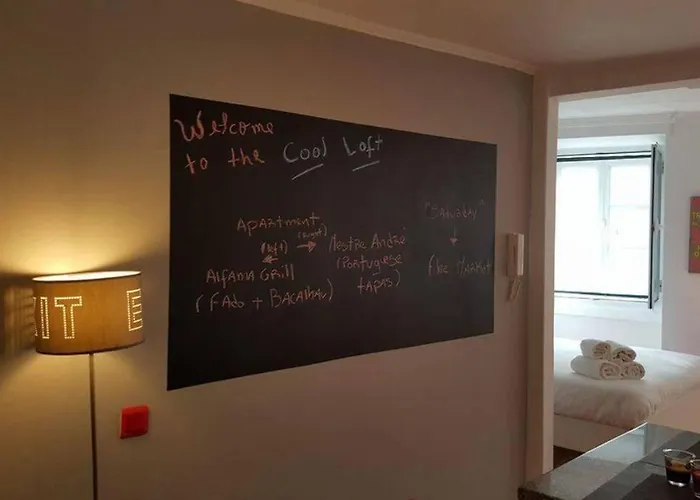 Welcome
to the Cool Loft
Apartment
(left) (Right)
Alfama Grill
(Fado + Bacalhau)
Mestre André
(Portuguese
tapas)
"Saturday"
Flee Market
IT E